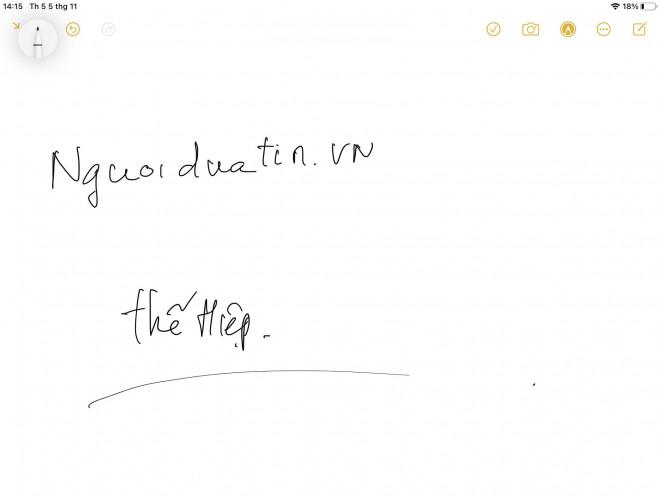 14:15 Th 5 5 thg 11 18%
Nguoiduatin.vn
thế Hiệp.